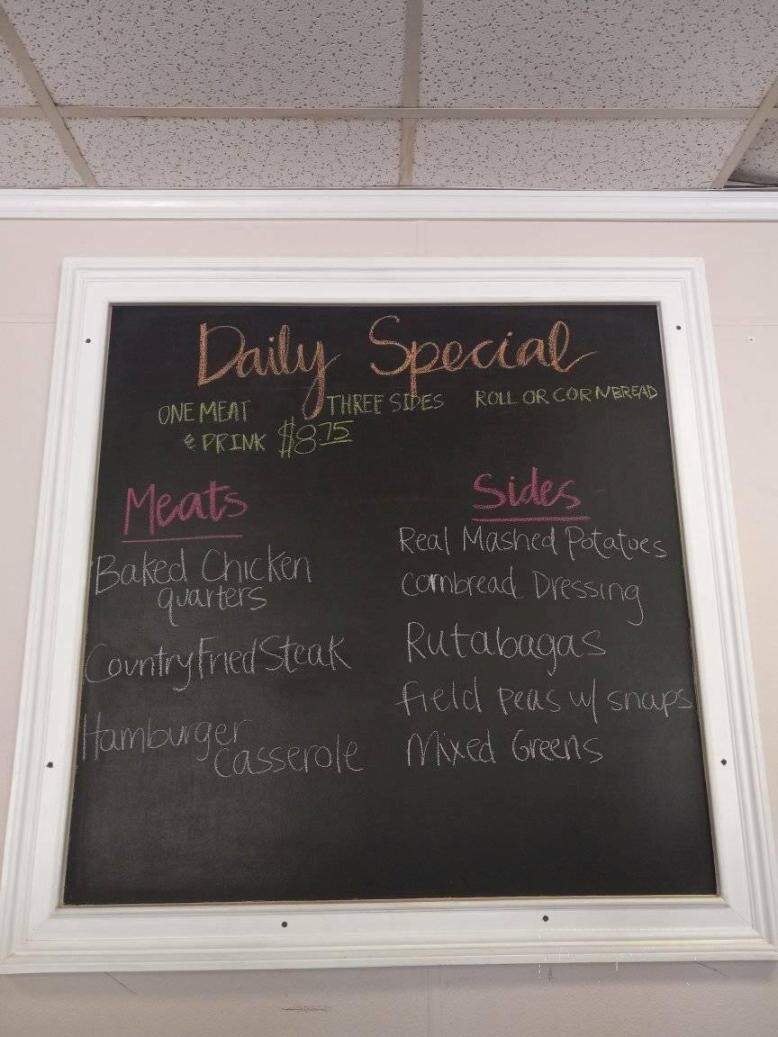 Daily Special
ONE MEAT THREE SIDES ROLL OR CORNBREAD
& DRINK $8.75
Meats
Baked Chicken
quarters
Country Fried Steak
Hamburger
Casserole
Sides
Real Mashed Potatoes
Cornbread Dressing
Rutabagas
field peas w/ snaps
Mixed Greens